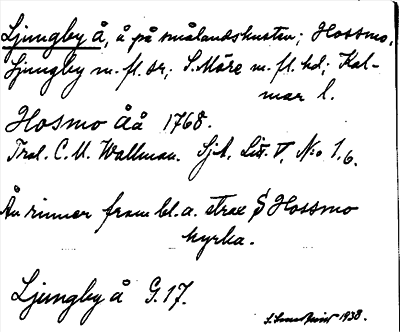 Ljungby å, å på smålandskusten; Hossmo,
Ljungby m. fl. sr; S. Möre m. fl. hd; Kal-
mar l.
Hosmo Åå 1768.
C. U. Wallman. Sj.k. Lit. V, No 1.6.
Ån rinner fram bl. a. strax S Hossmo
kyrka.
Ljungby å G. 17.
1938.